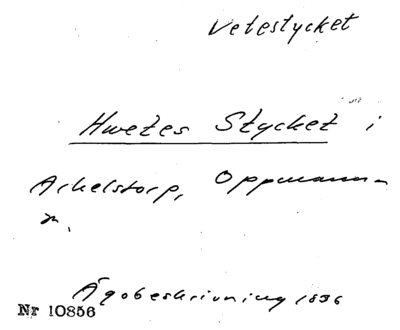 Vetestycket
Hwetes Stycket i
Arkelstorp, Oppmanna
n.
Ägobeskrivning 1836
Nr 10856